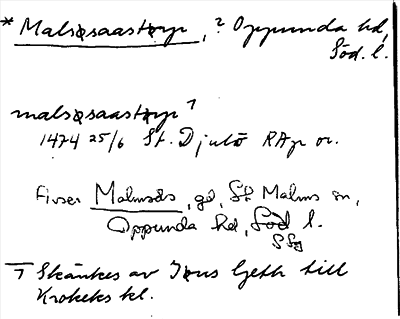 * Malsøsaastørp, ? Oppunda hd,
Söd. l.
malsøsaastørp ⁊
1474 25/6 St. Djulö RAp or.
Finser Malmsås, gd, St Malms sn,
Oppunda hd, Söd l.
SSg
⁊ Skänkes av Jøns Geth till
Krokeks kl.